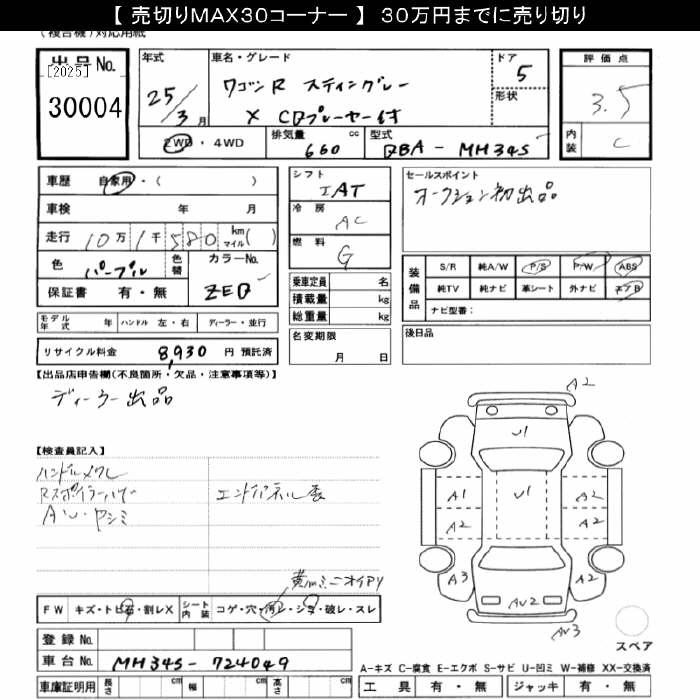 【 売切りMAX30コーナー 】 30万円までに売り切り
(複合機)対応用紙
出品No. [2025] 30004
年式 25/3月
車名・グレード ワゴンR スティングレー
X CDプレーヤー付
ドア 5
形状
評価点 3.5
内装 C
2WD・4WD
排気量 660 cc
型式 DBA - MH34S
車歴 自家用・( )
車検 年 月
走行 10万1千580 km マイル( )
色 パープル 色替
カラーNo. ZED
保証書 有・無
シフト IAT
冷房 AC
燃料 G
乗車定員 名
積載量 kg
総重量 kg
名変期限 月 日
セールスポイント
オークション初出品
装備品 S/R 純A/W P/S P/W ABS
純TV 純ナビ 革シート 外ナビ エアB
ナビ型番:
後日品
モデル年式 年 ハンドル 左・右 ディーラー・並行
リサイクル料金 8,930 円 預託済
【出品店申告欄(不良箇所・欠品・注意事項等)】
ディーラー出品
【検査員記入】
ハンドルメクレ
AW・ヤシミ
エンドパネル
FW キズ・トビ石・割レX シート内装 コゲ・穴・汚レ・シミ・破レ・スレ
登録No.
車台No. MH34S-724049
車庫証明用 長さ cm 幅 cm 高さ cm
A2
U1
A1 U1 A2
A2 A2
A3 A2
AU2
AU3
スペア
A-キズ C-腐食 E-エクボ S-サビ U-凹ミ W-補修 XX-交換済
工具 有・無 ジャッキ 有・無